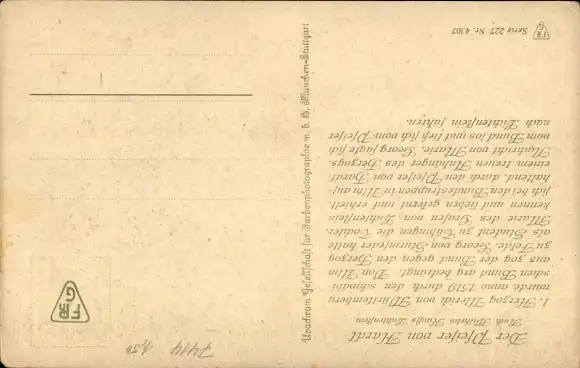 Der Pfeifer von Hardt
Nach Wilhelm Hauffs Lichtenstein
1. Herzog Ulerich von Württemberg
wurde anno 1519 durch den schwäbi-
schen Bund arg bedrängt. Von Ulm
aus zog der Bund gegen den Herzog
zu Felde. Georg von Sturmfeder hatte
als Student zu Tübingen die Tochter
Marie des Grafen von Lichtenstein
kennen und lieben gelernt und erhielt,
sich bei den Bundestruppen in Ulm auf-
haltend, durch den Pfeifer von Hardt
einem treuen Anhänger des Herzogs,
Nachricht von Marie. Georg sagte sich
vom Bund los und ließ sich vom Pfeifer
nach Lichtenstein führen.
Serie 227 Nr. 4307
FR
G
Uvachrom Gesellschaft für Farbenphotographie m. b. H. München-Stuttgart
FR
G
7414 1,50